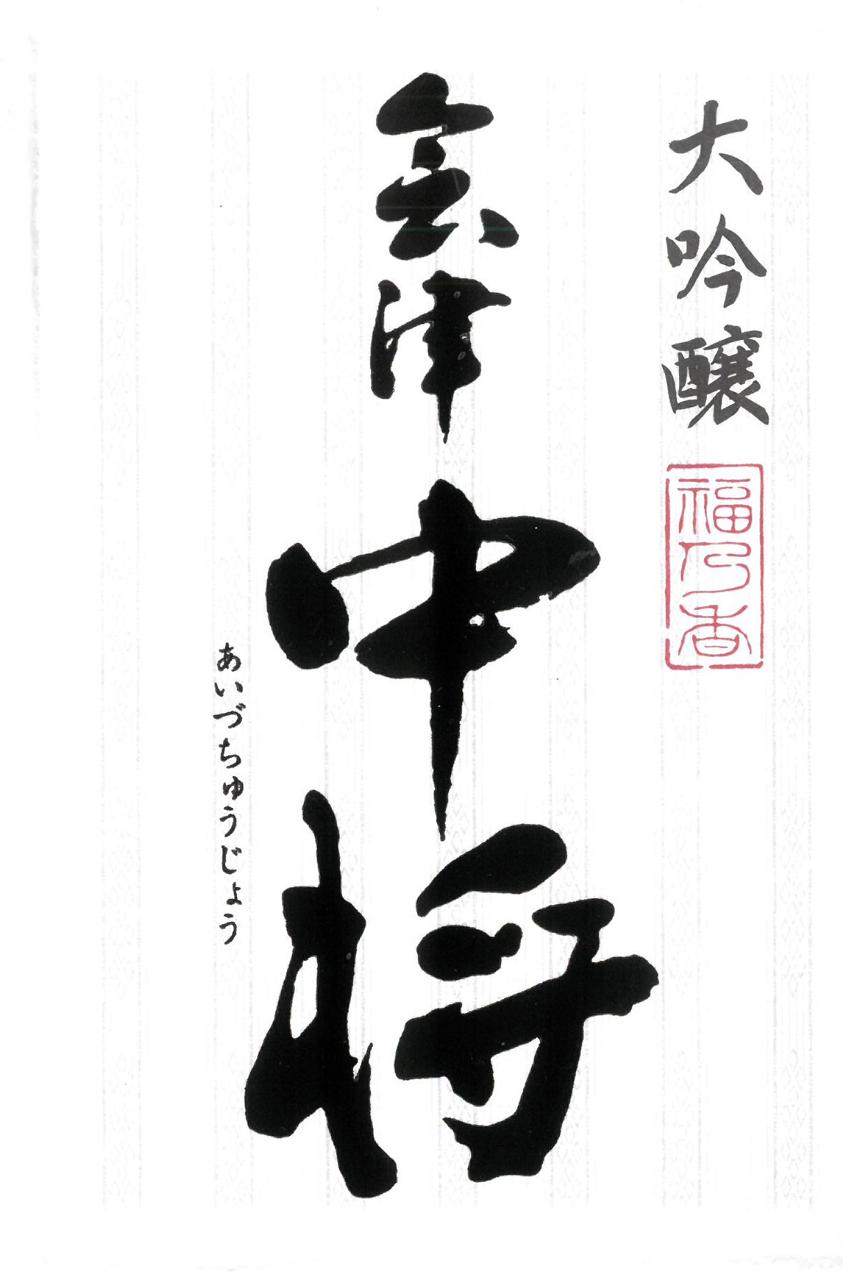 大吟醸
福乃香
会津中将
あいづちゅうじょう